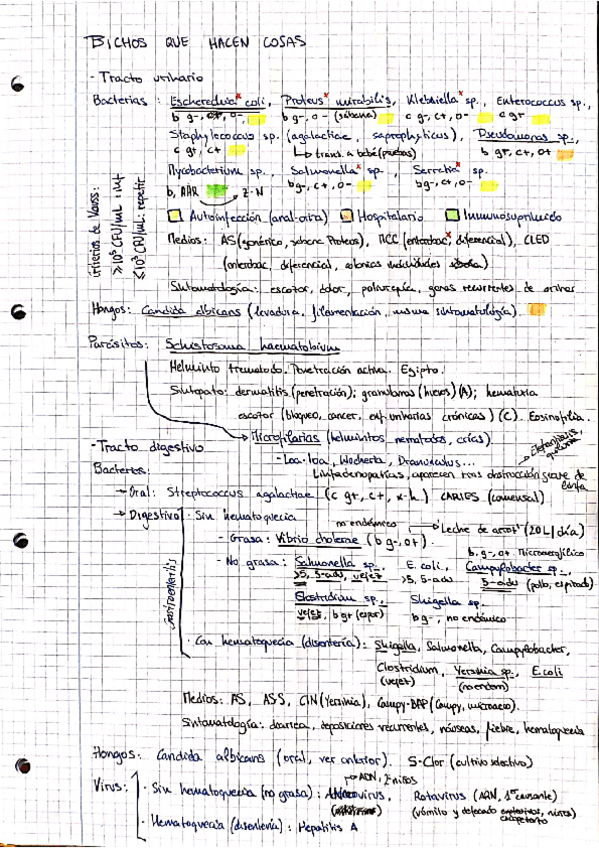 BICHOS QUE HACEN COSAS
- Tracto urinario
Bacterias: Escherichia coli, Proteus mirabilis, Klebsiella sp., Enterococcus sp.,
b g-, c+, o-, b g-, o- (sábana) b g-, c+, o- c g+
Staphylococcus sp. (agalactiae, saprophyticus), Pseudomonas sp.,
c g+, c+ trans. a bebé b g+, c+, o+
Mycobacterium sp., Salmonella sp., Serratia sp.
b, AAR Z-N b g-, c+, o- b g-, c+, o-
Criterios de Kass:
≥10⁵ CFU/mL: inf
≤10³ CFU/mL: repetir
Autoinfección (anal-orina) Hospitalario Inmunosuprimido
Medios: AS (genérico, sábana Proteus), MCC (enterobac, diferencial), CLED
(enterobac, diferencial, colonias individuales)
Sintomatología: escozor, dolor, polaquiuria, ganas recurrentes de orinar
Hongos: Candida albicans (levadura, filamentación, misma sintomatología).
Parásitos: Schistosoma haematobium
Helminto trematodo. Penetración activa. Egipto.
Sintopato: dermatitis (penetración); granulomas (huevos) (A); hematuria
escozor (bloqueo, cancer, enf. urinarias crónicas) (C). Eosinofilia.
Microfilarias (helmintos nematodos, crías).
- Loa-loa, Dranunculus...
Linfadenopatías, aparecen tras obstrucción grave de linfa
- Tracto digestivo
Bacterias:
- Oral: Streptococcus agalactiae (c g+, c+, α-h) CARIES (comensal)
- Digestivo · Sin hematoquecia
Gastroenteritis
no endémico Leche de arroz (20L/día)
- Grasa: Vibrio cholerae (b g-, o+)
b, g-, o+ Microaerofílico
- No grasa: Salmonella sp., E. coli, Campylobacter sp.,
>5, 5-adu, vejet >5, 5-adu 5-adu (pollo, espirado)
Clostridium sp., Shigella sp.
vejet, b g+ (espor) b g-, no endémico
· Con hematoquecia (disentería): Shigella, Salmonella, Campylobacter,
Clostridium, Yersinia sp., E. coli
(vejet) (no endem)
Medios: AS, ASS, CIN (Yersinia), Campy-BAP (Campy, microaero).
Sintomatología: diarrea, deposiciones recurrentes, náuseas, fiebre, hematoquecia
Hongos: Candida albicans (oral, ver anterior). S-Clor (cultivo selectivo)
ADN, 2º niños
Virus: · Sin hematoquecia (no grasa): Adenovirus, Rotavirus (ARN, 1º causante)
(vómito y defecado explosivo, niños)
· Hematoquecia (disentería): Hepatitis A